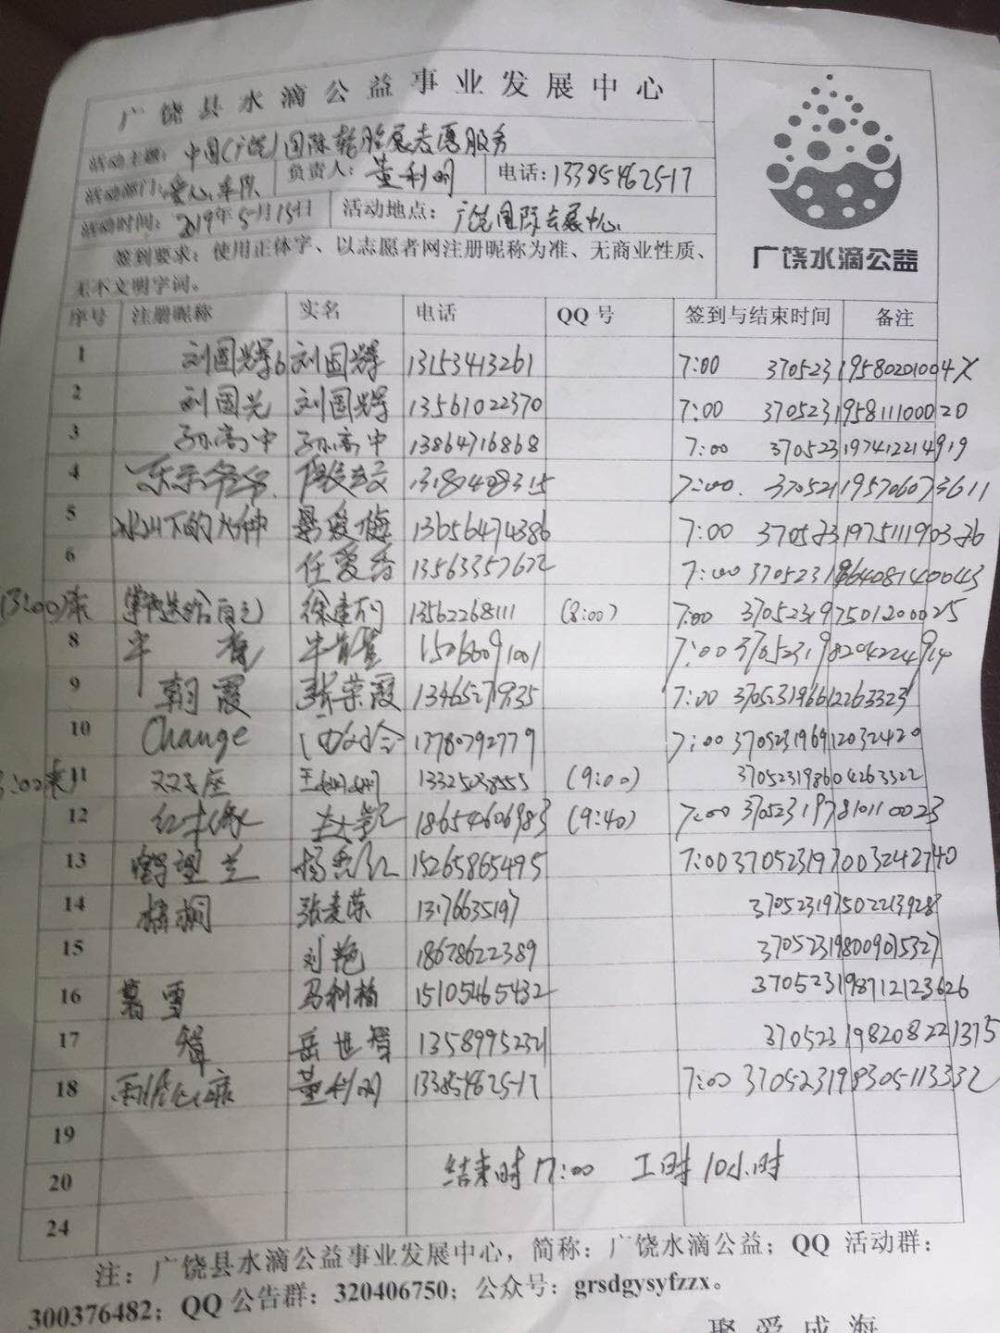 广饶县水滴公益事业发展中心
活动主题: 中国(广饶)国际轮胎展志愿服务
活动部门: 爱心车队 负责人: 董利明 电话: 13385462517
活动时间: 2019年5月15日 活动地点: 广饶国际会展中心
签到要求: 使用正体字、以志愿者网注册昵称为准、无商业性质、
无不文明字词。
广饶水滴公益
序号 注册昵称 实名 电话 QQ号 签到与结束时间 备注
1 刘国辉6 刘国辉 13153413261 7:00 37052319580201004X
2 刘国光 刘国辉 13561022370 7:00 370523195811100020
3 孙高中 孙高中 13864716868 7:00 370523197412214919
4 7:00 370521195706073611
5 冰山下的火种 13656474386 7:00
6 任爱香 13563357672 7:00
13:00来 徐建刚 13562268111 (8:00) 7:00 370523197501200025
8 牛 15066091001 7:00 370523198204224914
9 朝霞 张荣霞 13465271935 7:00 370523196612263323
10 Change 13780792779 7:00 370523196912032420
11 双子座 王娟娟 13325038555 (9:00) 370523198604263322
12 18654606983 (9:40) 7:00 370523197810110023
13 鹤望兰 15265865495 7:00 370523197003242740
14 梧桐 张麦荣 13176635197 370523197502213928
15 刘艳 18678622389 370523198009075327
16 慕雪 马利梅 15105465432 370523198712123626
17 岳世 13589952321 370523198208221375
18 董利明 13385462517 7:00 370523198305113332
19
20 结束时17:00 工时10小时
24
注: 广饶县水滴公益事业发展中心, 简称: 广饶水滴公益; QQ 活动群:
300376482; QQ 公告群: 320406750; 公众号: grsdgysyfzzx。
聚爱成海